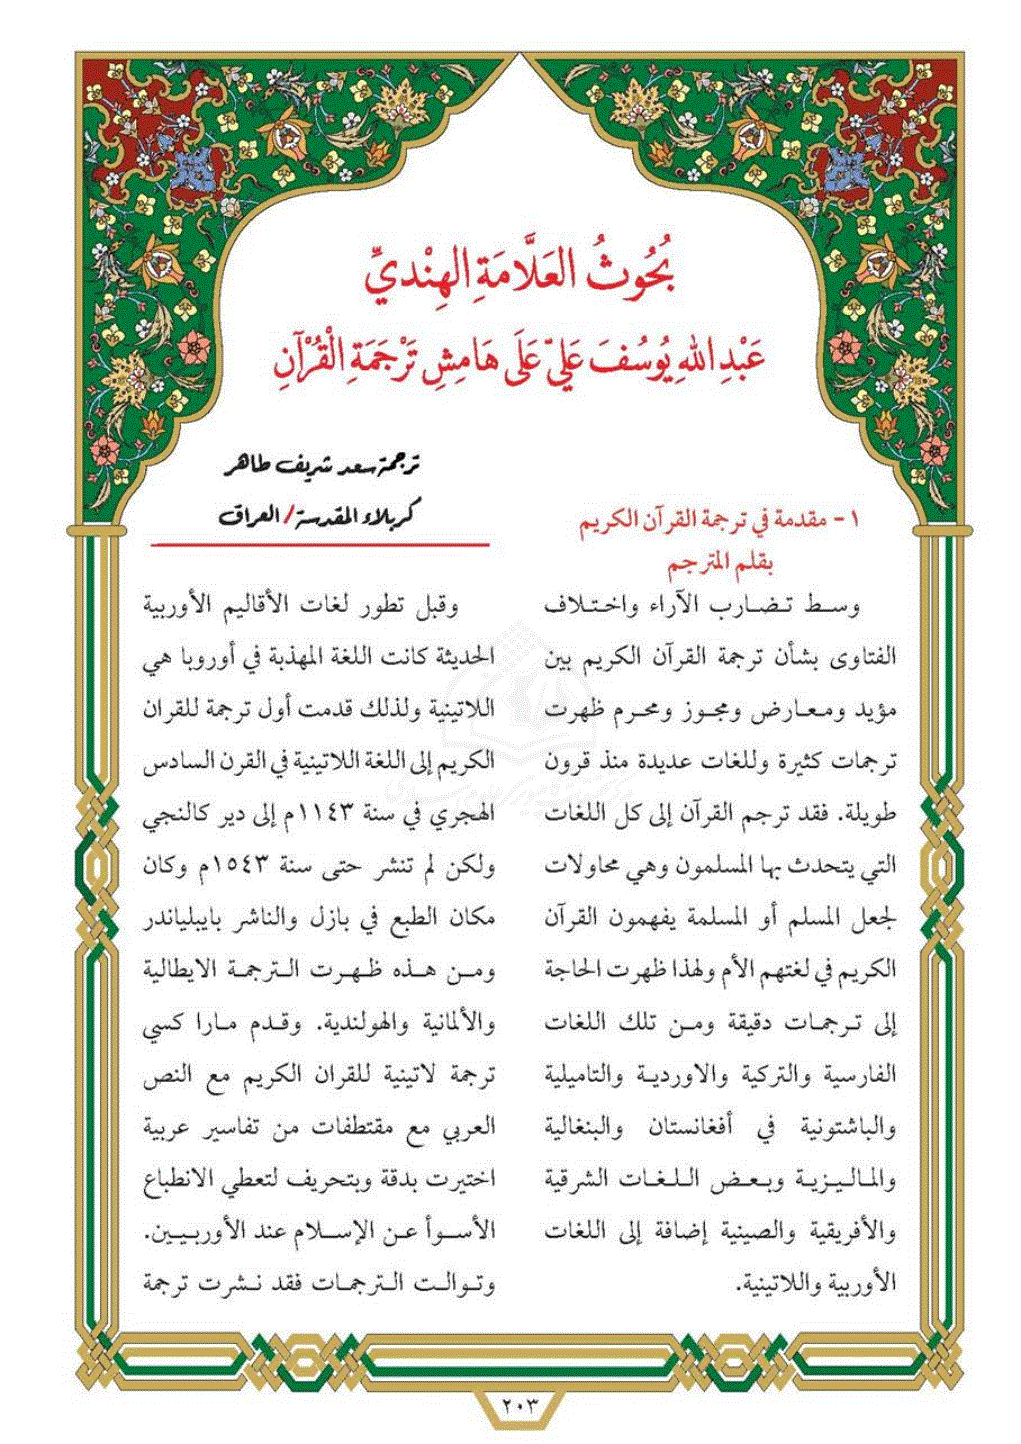 بُحُوثُ العَلَّامَةِ الهِنْديِّ
عَبْدِ اللهِ يُوسُفَ عَليّ عَلَى هَامِشِ تَرْجَمَةِ الْقُرْآنِ
ترجمة سعد شريف طاهر
كربلاء المقدسة/ العراق
١- مقدمة في ترجمة القرآن الكريم
بقلم المترجم
وسط تضارب الآراء واختلاف
الفتاوى بشأن ترجمة القرآن الكريم بين
مؤيد ومعارض ومجوز ومحرم ظهرت
ترجمات كثيرة وللغات عديدة منذ قرون
طويلة. فقد ترجم القرآن إلى كل اللغات
التي يتحدث بها المسلمون وهي محاولات
لجعل المسلم أو المسلمة يفهمون القرآن
الكريم في لغتهم الأم ولهذا ظهرت الحاجة
إلى ترجمات دقيقة ومن تلك اللغات
الفارسية والتركية والاوردية والتاميلية
والباشتونية في أفغانستان والبنغالية
والماليزية وبعض اللغات الشرقية
والأفريقية والصينية إضافة إلى اللغات
الأوربية واللاتينية.
وقبل تطور لغات الأقاليم الأوربية
الحديثة كانت اللغة المهذبة في أوروبا هي
اللاتينية ولذلك قدمت أول ترجمة للقران
الكريم إلى اللغة اللاتينية في القرن السادس
الهجري في سنة ١١٤٣م إلى دير كالنجي
ولكن لم تنشر حتى سنة ١٥٤٣م وكان
مكان الطبع في بازل والناشر بايبلياندر
ومن هذه ظهرت الترجمة الايطالية
والألمانية والهولندية. وقدم مارا كسي
ترجمة لاتينية للقران الكريم مع النص
العربي مع مقتطفات من تفاسير عربية
اختيرت بدقة وبتحريف لتعطي الانطباع
الأسوأ عن الإسلام عند الأوربيين.
وتوالت الترجمات فقد نشرت ترجمة
٢٠٣